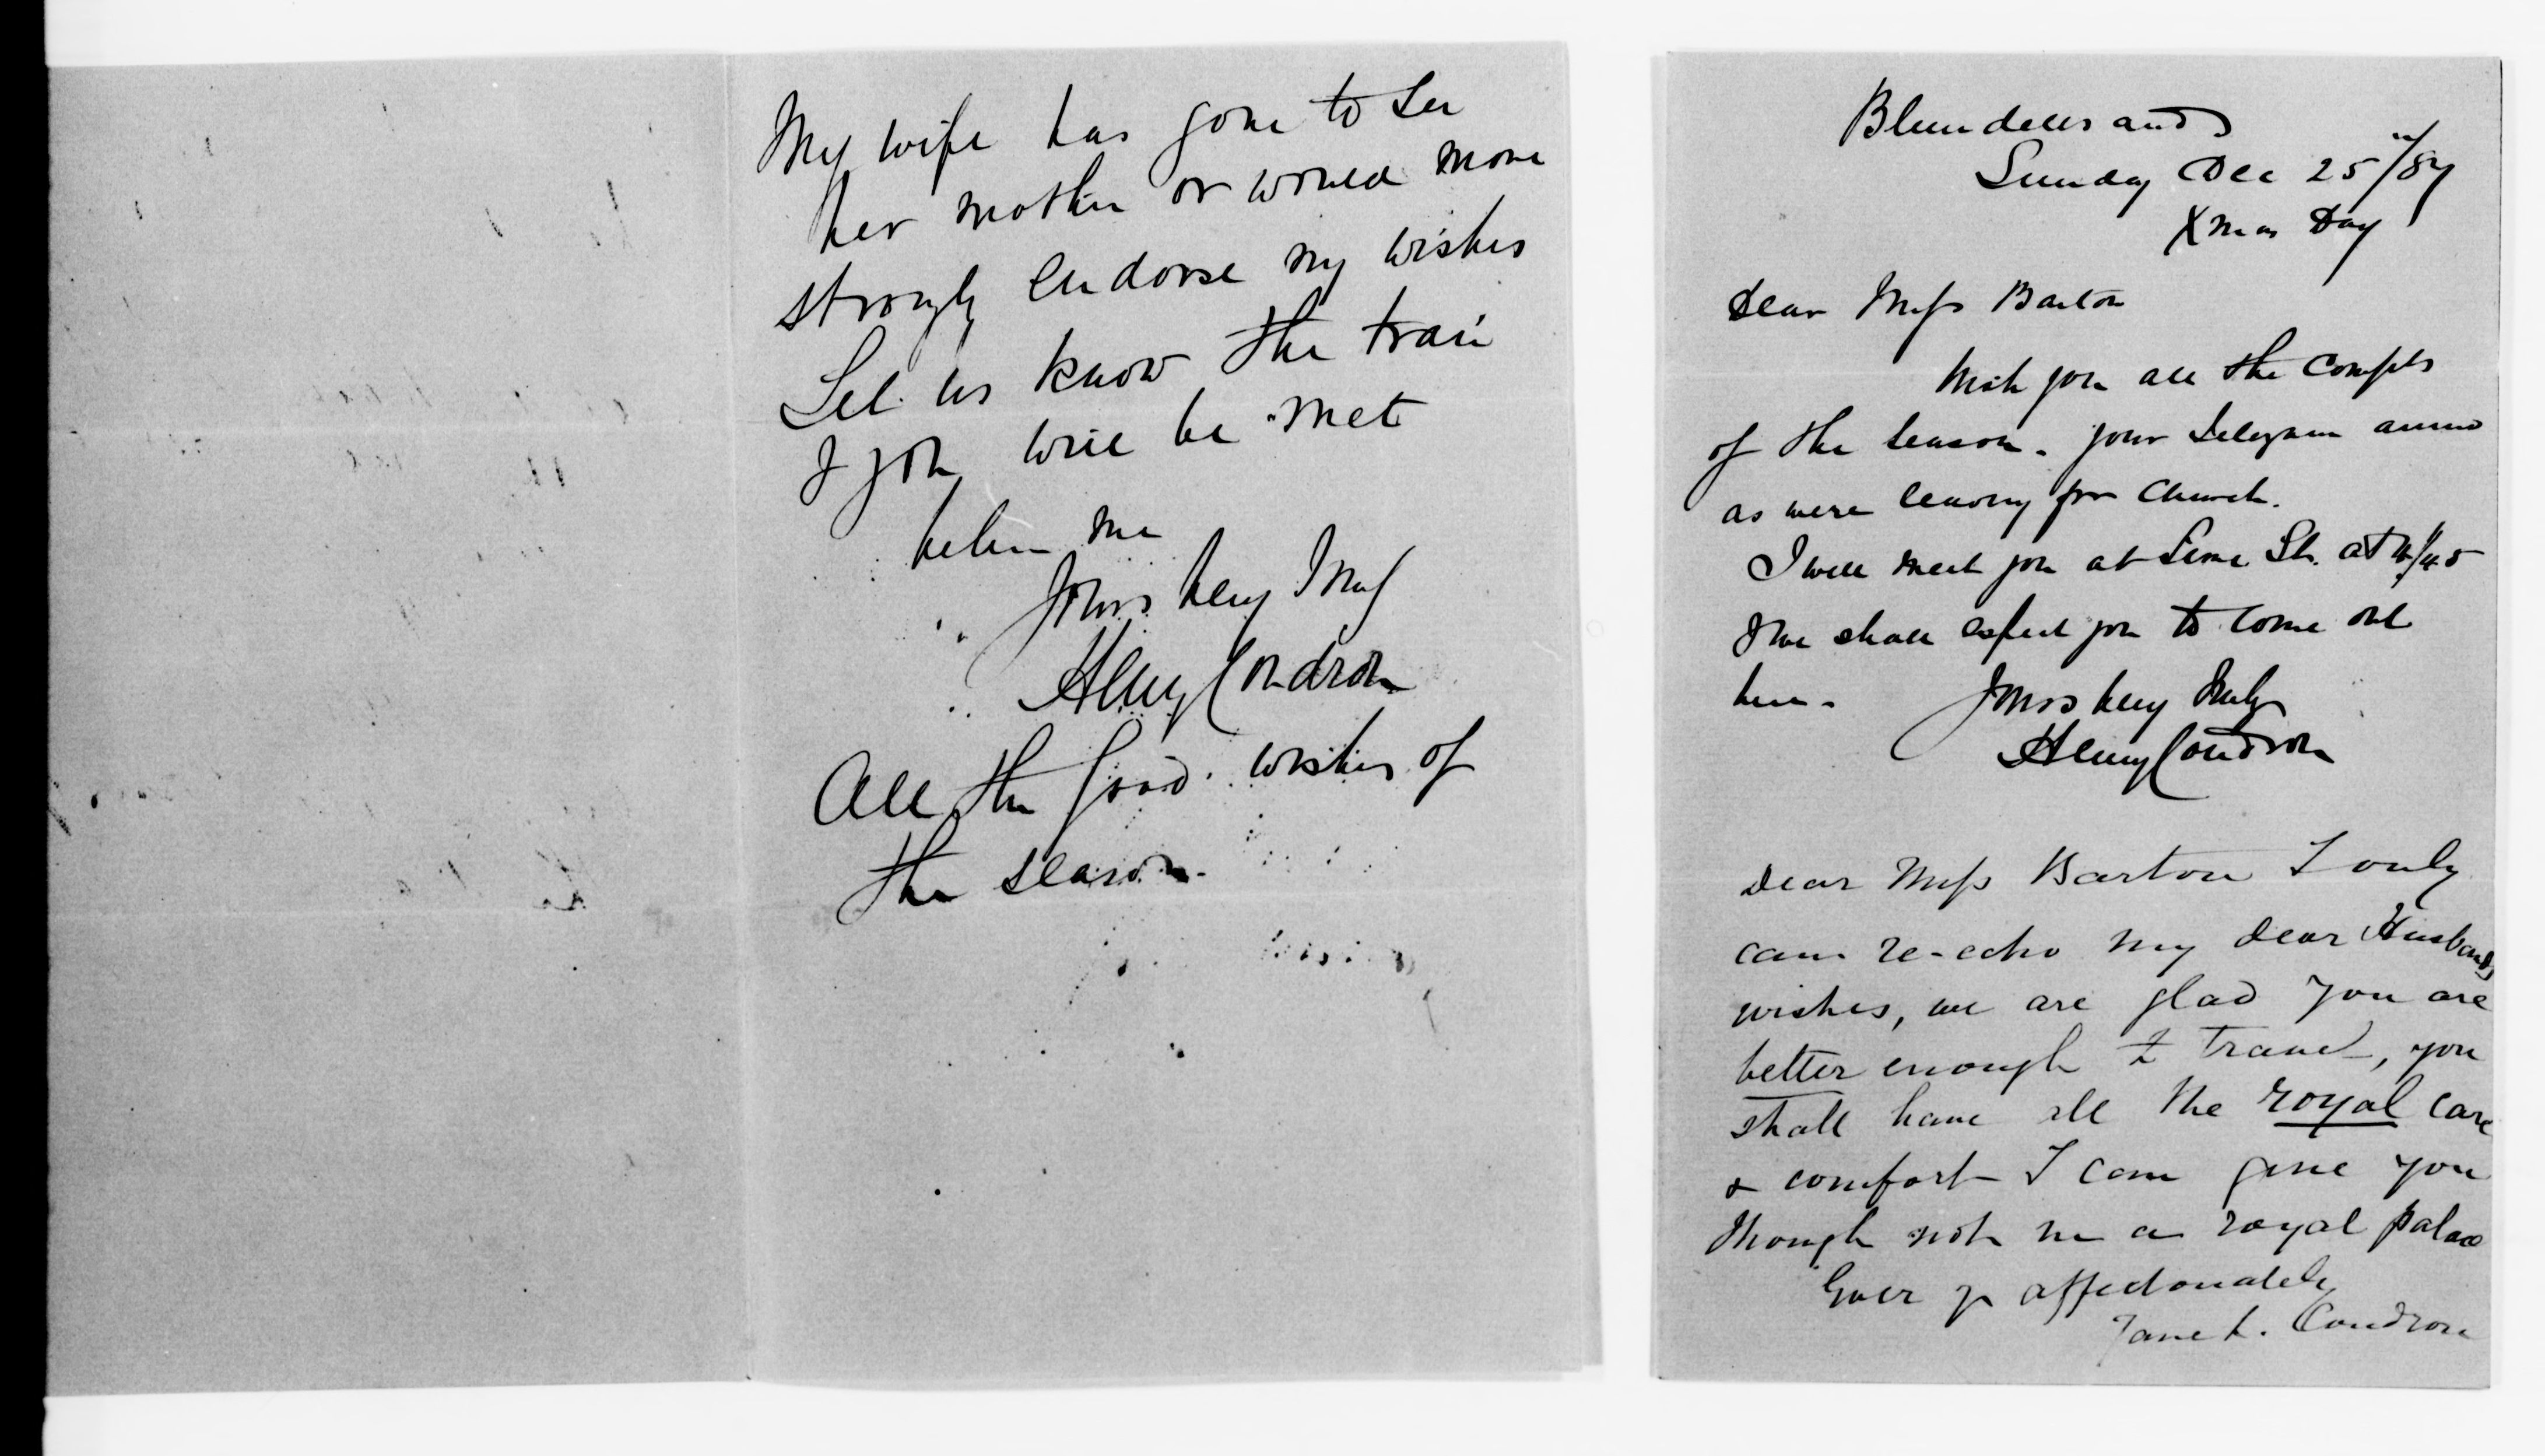 My wife has gone to see
her mother or would more
strongly endorse my wishes
Let us know the train
& you will be met
believe me
Yours very Truly
Henry Condron
All the good wishes of
the season.
Blundellsands
Sunday Dec 25th/87
Xmas Day
Dear Miss Barton
Wish you all the Compts
of the season. your Telegram arrived
as were leaving for Church.
I will meet you at Lime St. at 4/45
& we shall expect you to come out
here. Yours very truly
Henry Condron
Dear Miss Barton I only
can re-echo my dear Husbands
wishes, we are glad you are
better enough to travel, you
shall have all the royal care
& comfort I can give you
though not in a royal palace
Ever yr affectionately
Jane L. Condron